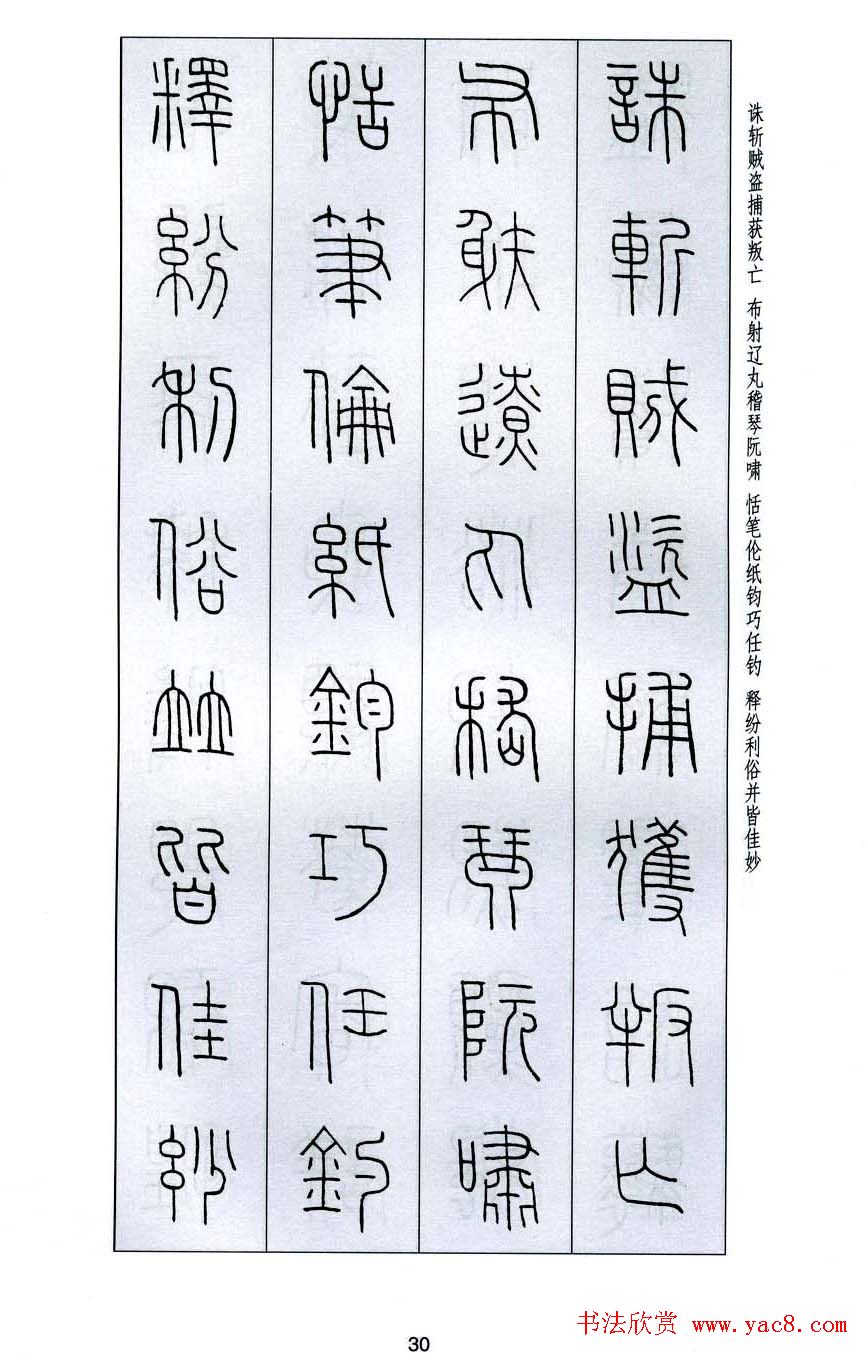 诛斩贼盗捕获叛亡 布射辽丸稽琴阮啸 恬笔伦纸钧巧任钓 释纷利俗并皆佳妙
誅斬賊盜捕獲叛亡
布射遼丸嵇琴阮嘯
恬筆倫紙鈞巧任釣
釋紛利俗竝皆佳紗
30
书法欣赏 www.yac8.com